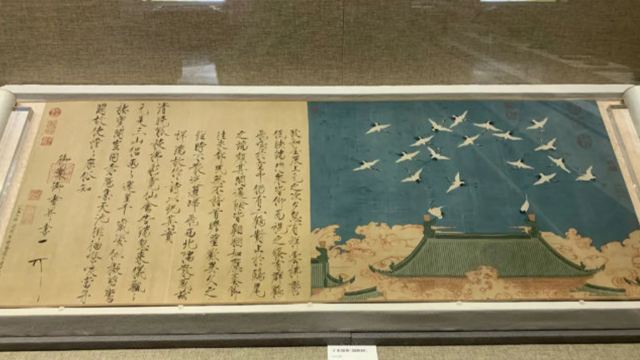 政和壬辰上元之次夕忽有祥雲拂鬱
低映端門衆皆仰而視之倏有群鶴
飛鳴於空中仍有二鶴對止於鴟尾
之端頗甚閒適餘皆翱翔如應奏節
往來都民無不稽首瞻望歎異久之
經時不散迤邐歸飛西北隅散感茲
祥瑞故作詩以紀其實
清曉觚稜拂彩霓仙禽告瑞忽來儀飄飄
元是三山侶兩兩還呈千歲姿似擬碧鸞
棲寶閣豈同赤雁集天池徘徊嘹唳當丹
闕故使憧憧庶俗知
御製御畫并書